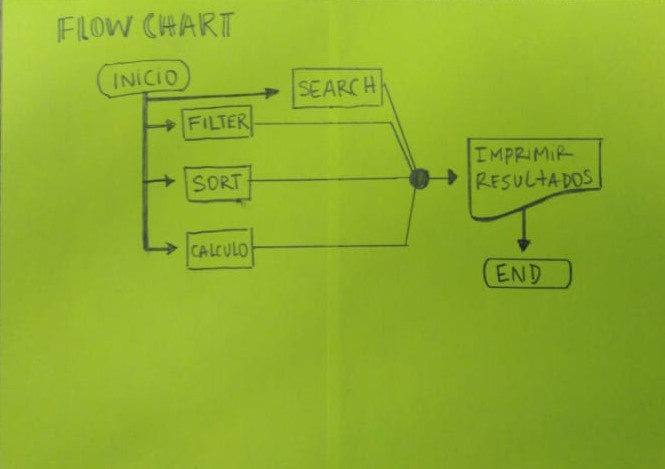 FLOW CHART
INICIO
SEARCH
FILTER
SORT
CALCULO
IMPRIMIR
RESULTADOS
END